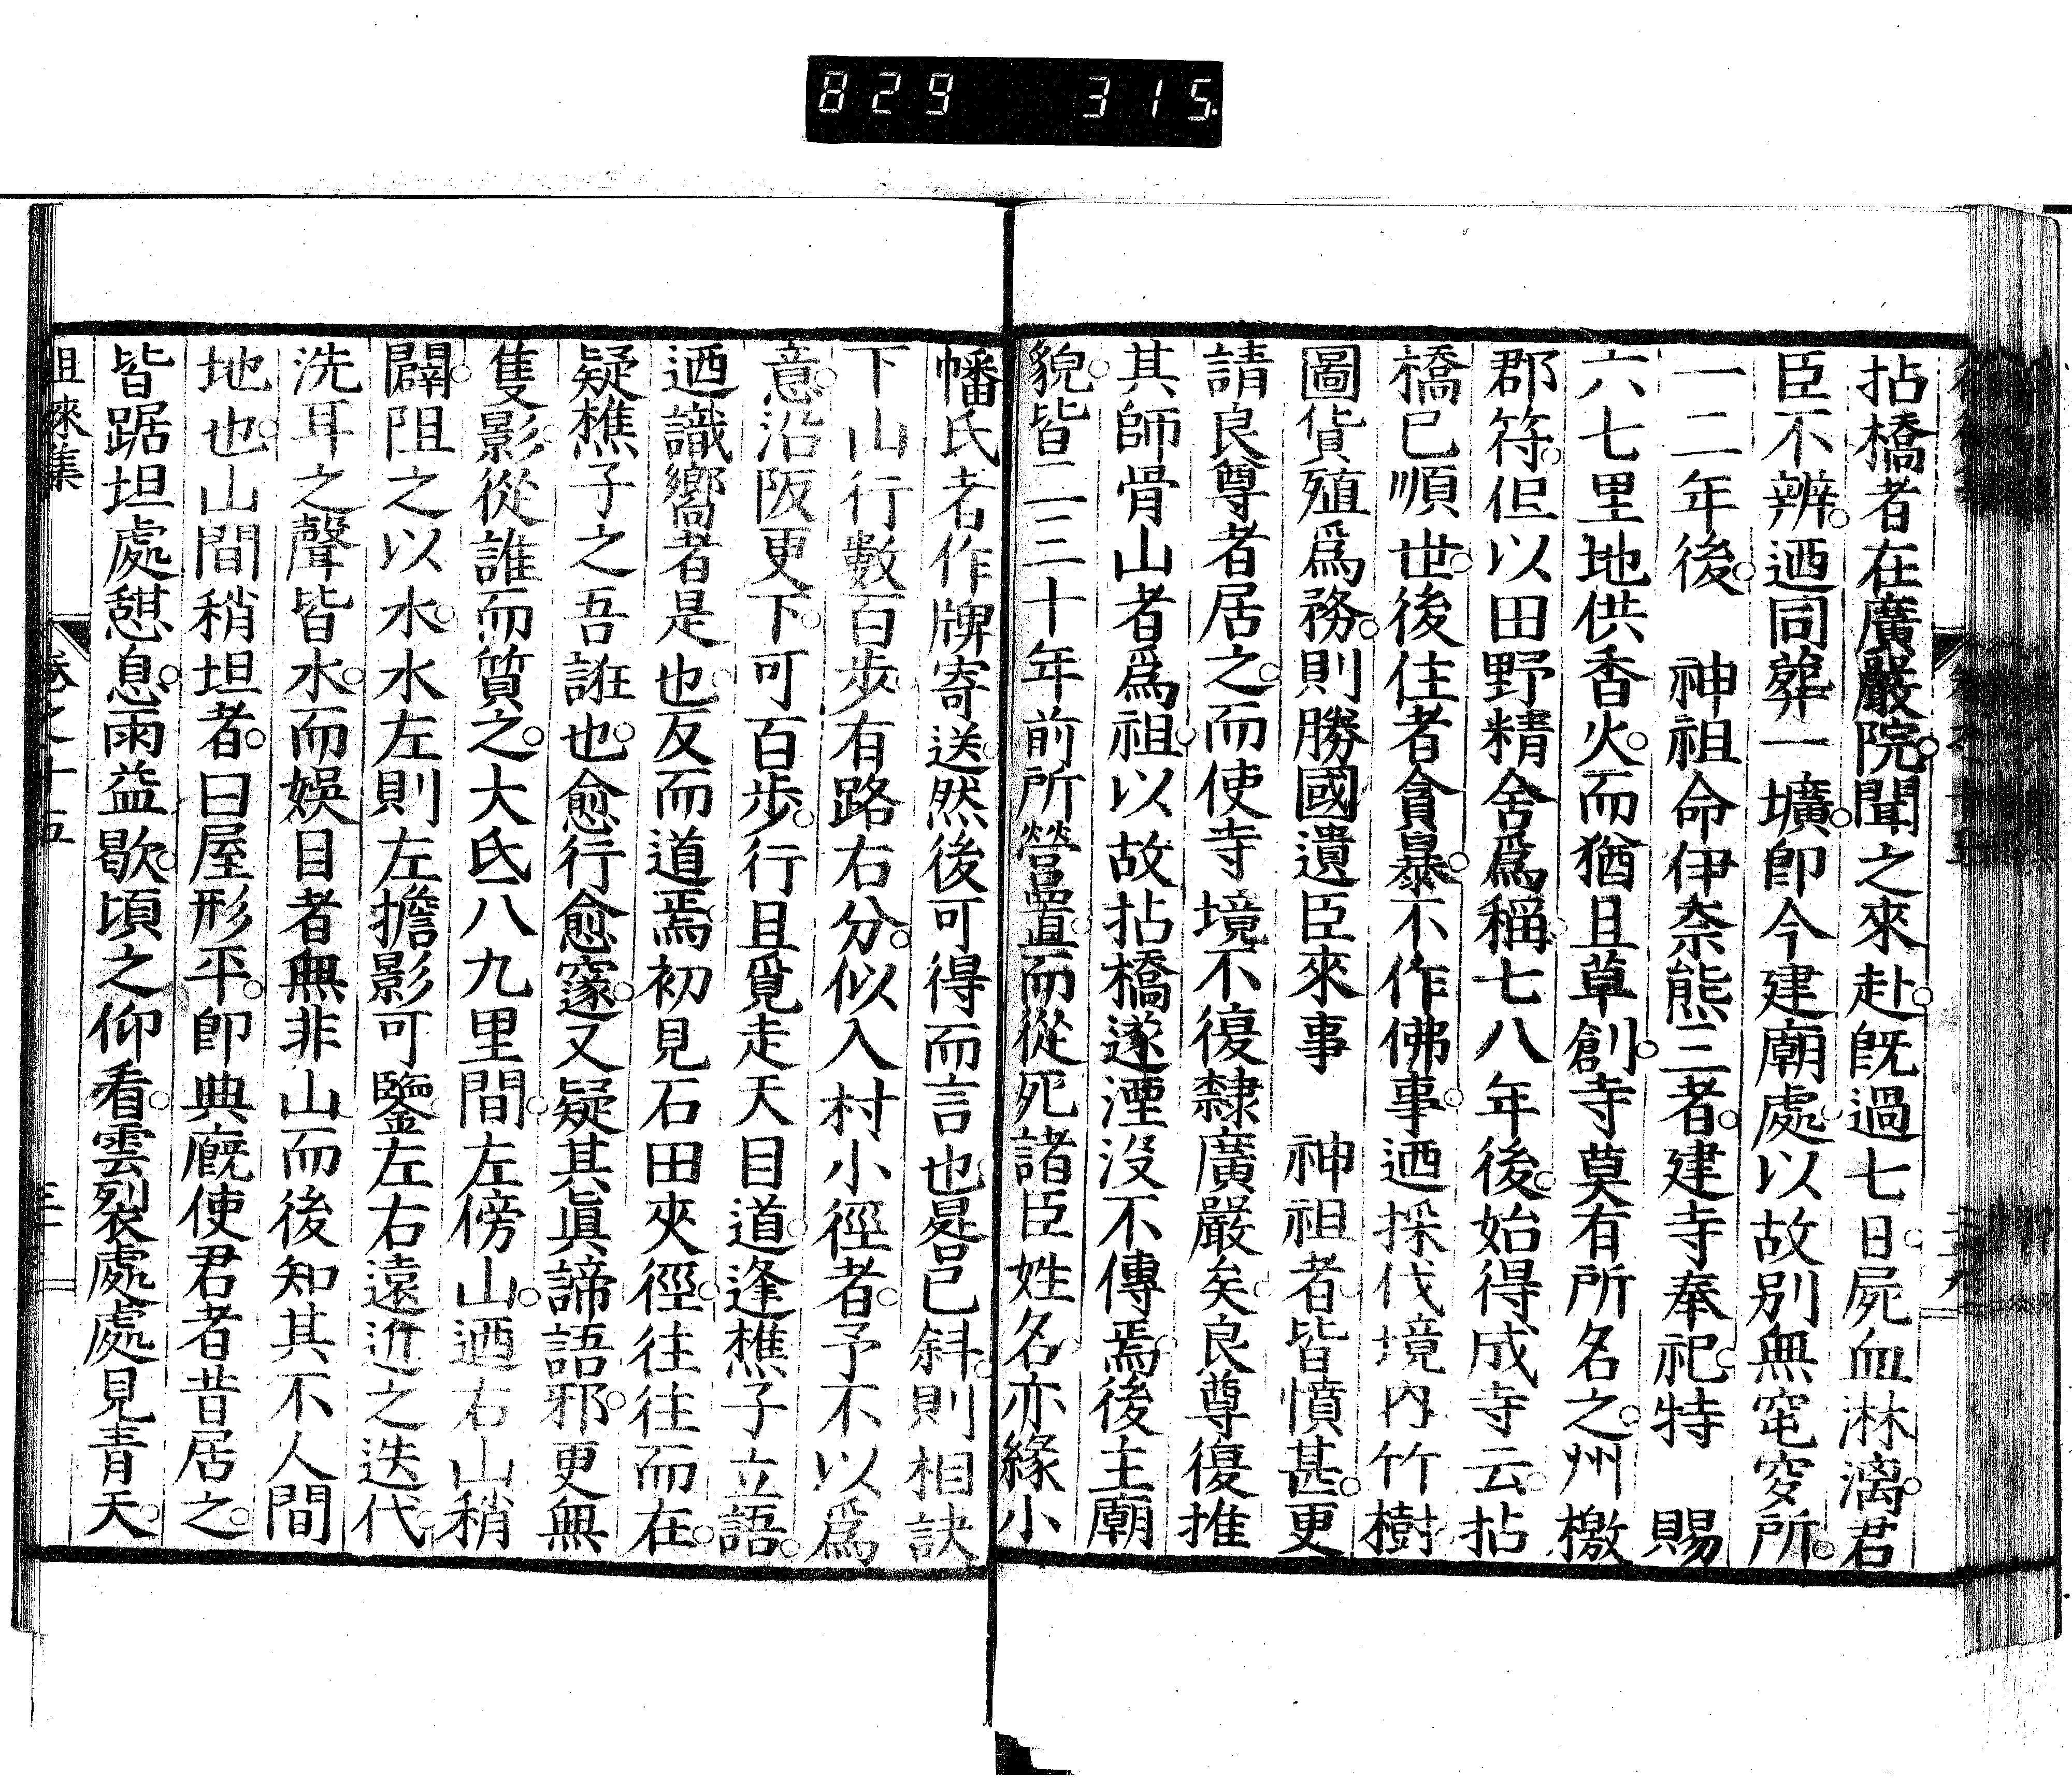 829 315
拈橋者在廣嚴院。聞之來赴。旣過七日。屍血淋漓。君
臣不辨。迺同葬一壙。卽今建廟處。以故別無窀穸所。
一二年後。神祖命伊奈熊三者。建寺奉祀。特賜
六七里地供香火。而猶且草創。寺莫有所名之。州檄
郡符。但以田野精舍爲稱。七八年後。始得成寺云。拈
橋已順世。後住者貪暴。不作佛事。迺採伐境內竹樹
圖貨殖爲務。則勝國遺臣來事神祖者。皆憤甚。更
請良尊者居之。而使寺境不復隸廣嚴矣。良尊復推
其師骨山者爲祖。以故拈橋遂湮沒不傳焉。後主廟
貌。皆二三十年前所營置。而從死諸臣姓名。亦緣小
幡氏者作牌寄送。然後可得而言也。晷已斜。則相訣
下山。行數百步。有路右分。似入村小徑者。予不以爲
意。沿阪更下。可百步。行且覓走天目道。逢樵子立語。
迺識嚮者是也。反而道焉。初見石田夾徑。往往而在。
疑樵子之吾誑也。愈行愈窵。又疑其眞諦語邪。更無
隻影從誰而質之。大氐八九里間。左傍山。迺右山稍
闢。阻之以水。水左則左擔影可鑒。左右遠近之迭代。
洗耳之聲皆水。而娛目者無非山。而後知其不人間
地也。山間稍坦者。曰屋形平。卽典廐使君者昔居之。
皆踞坦處憩息。雨益歇。頃之仰看。雲裂處處見青天。
徂徠集 卷之十五 三十